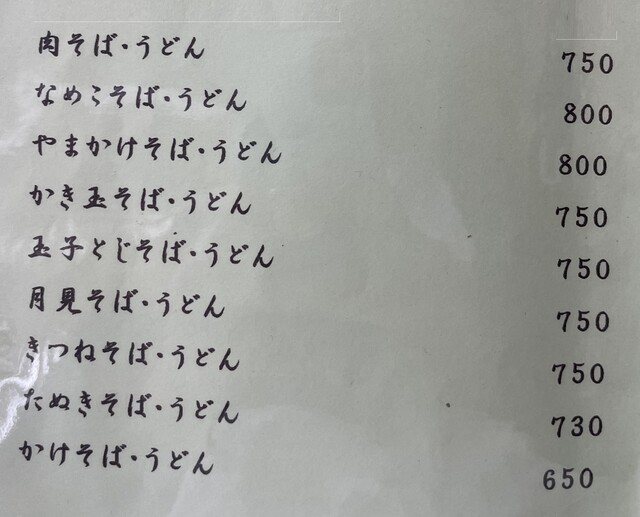 肉そば・うどん 750
なめこそば・うどん 800
やまかけそば・うどん 800
かき玉そば・うどん 750
玉子とじそば・うどん 750
月見そば・うどん 750
きつねそば・うどん 750
たぬきそば・うどん 730
かけそば・うどん 650